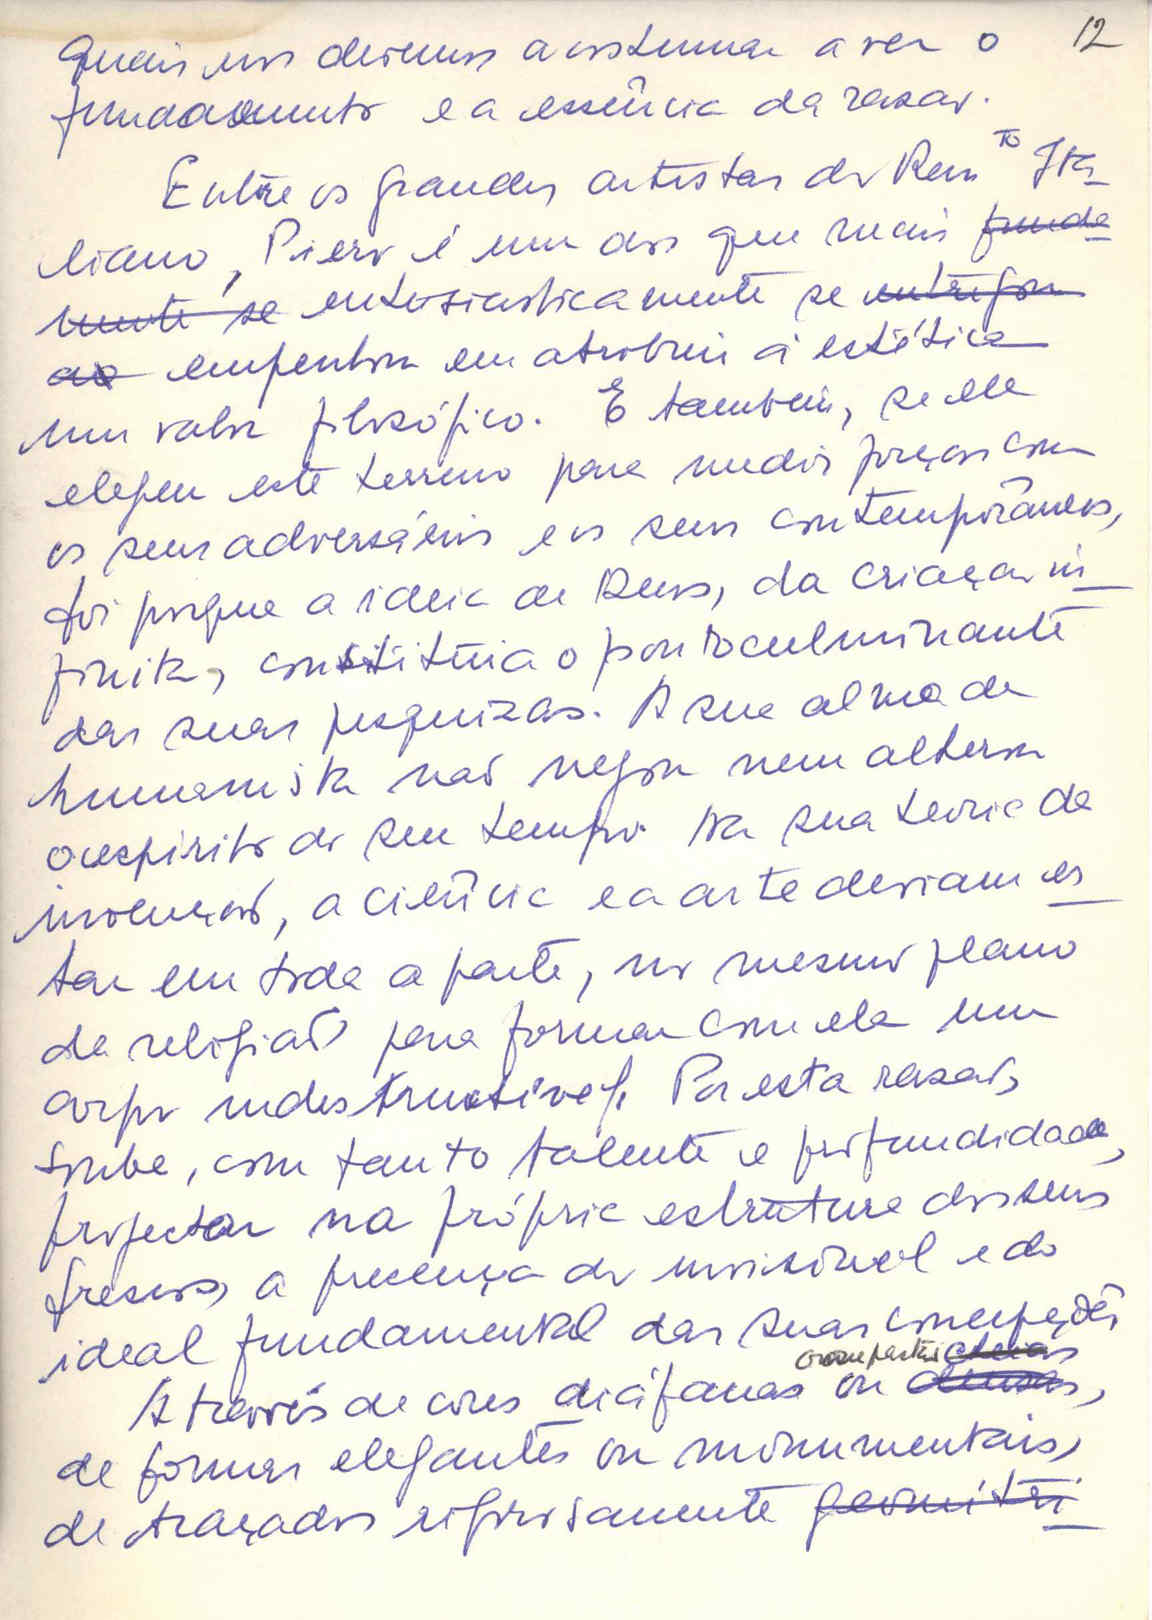 12
quais nos devemos acostumar a ver o
fundamento e a essência da razão.
Entre os grandes artistas do Ren.to Ita-
liano, Piero é um dos que mais funda
mente se entusiasticamente se entregou
ao empenhou em atribuir à estética
um valor filosófico. E também, se ele
elegeu este terreno para medir forças com
os seus adversários e os seus contemporâneos,
foi porque a ideia de Deus, da criação in-
finita, constituia o ponto culminante
das suas pesquizas. A sua alma de
humanista não negou nem alterou
o espirito do seu tempo. Na sua teoria da
invenção, a ciência e a arte deviam es-
tar em toda a parte, no mesmo plano
da religião para formar com ela um
corpo indestructivel. Por esta razão,
soube, com tanto talento e profundidade,
projectar na própria estrutura dos seus
frescos, a presença do invisível e do
ideal fundamental das suas concepções
cheias
Através de cores diáfanas ou densas,
de formas elegantes ou monumentais,
de traçados rigorosamente geométri-